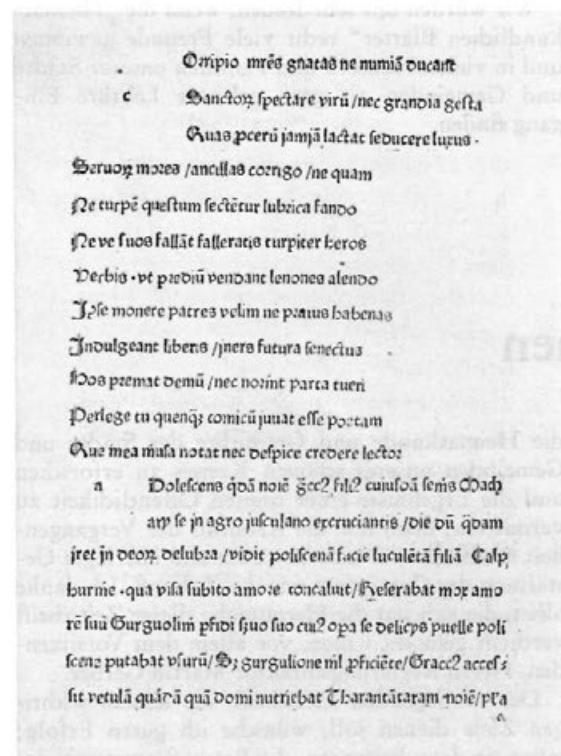 Oripio mrēs gnatas ne numiā ducant
c Sanctoꝝ spectare virū / nec grandia gesta
Quas ꝓcerū jamjā lactat seducere luxus .
Seruoꝝ mores / ancillas corrigo / ne quam
Ne turpē questum sectētur lubrica fando
Ne ve suos fallāt falleratis turpiter heros
Verbis . vt prediū vendant lenones alendo
Ipse monere patres velim ne prauus habenas
Indulgeant liberis / jners futura senectus
Hos premat demū / nec norint parta tueri
Perlege tu quenqꝫ comicū juuat esse poetam
Que mea musa notat nec despice credere lector
Dolescens qdā noīe
se jn agro jusculano excruciantis / die dū qdam
jret jn deoꝝ delubra / vidit poliscenā facie luculētā filiā Calp
burnie . qua visa subito amore concaluit / Reserabat moꝝ amo
rē suū Gurguolini suo cuꝰ opa se delicijs puelle poli
scene putabat vsurū / Sꝫ gurgulione nil ꝓficiēte / Graccꝰ accers
sit vetulā quādā quā domi nutriebat Tharantāraram noīe /